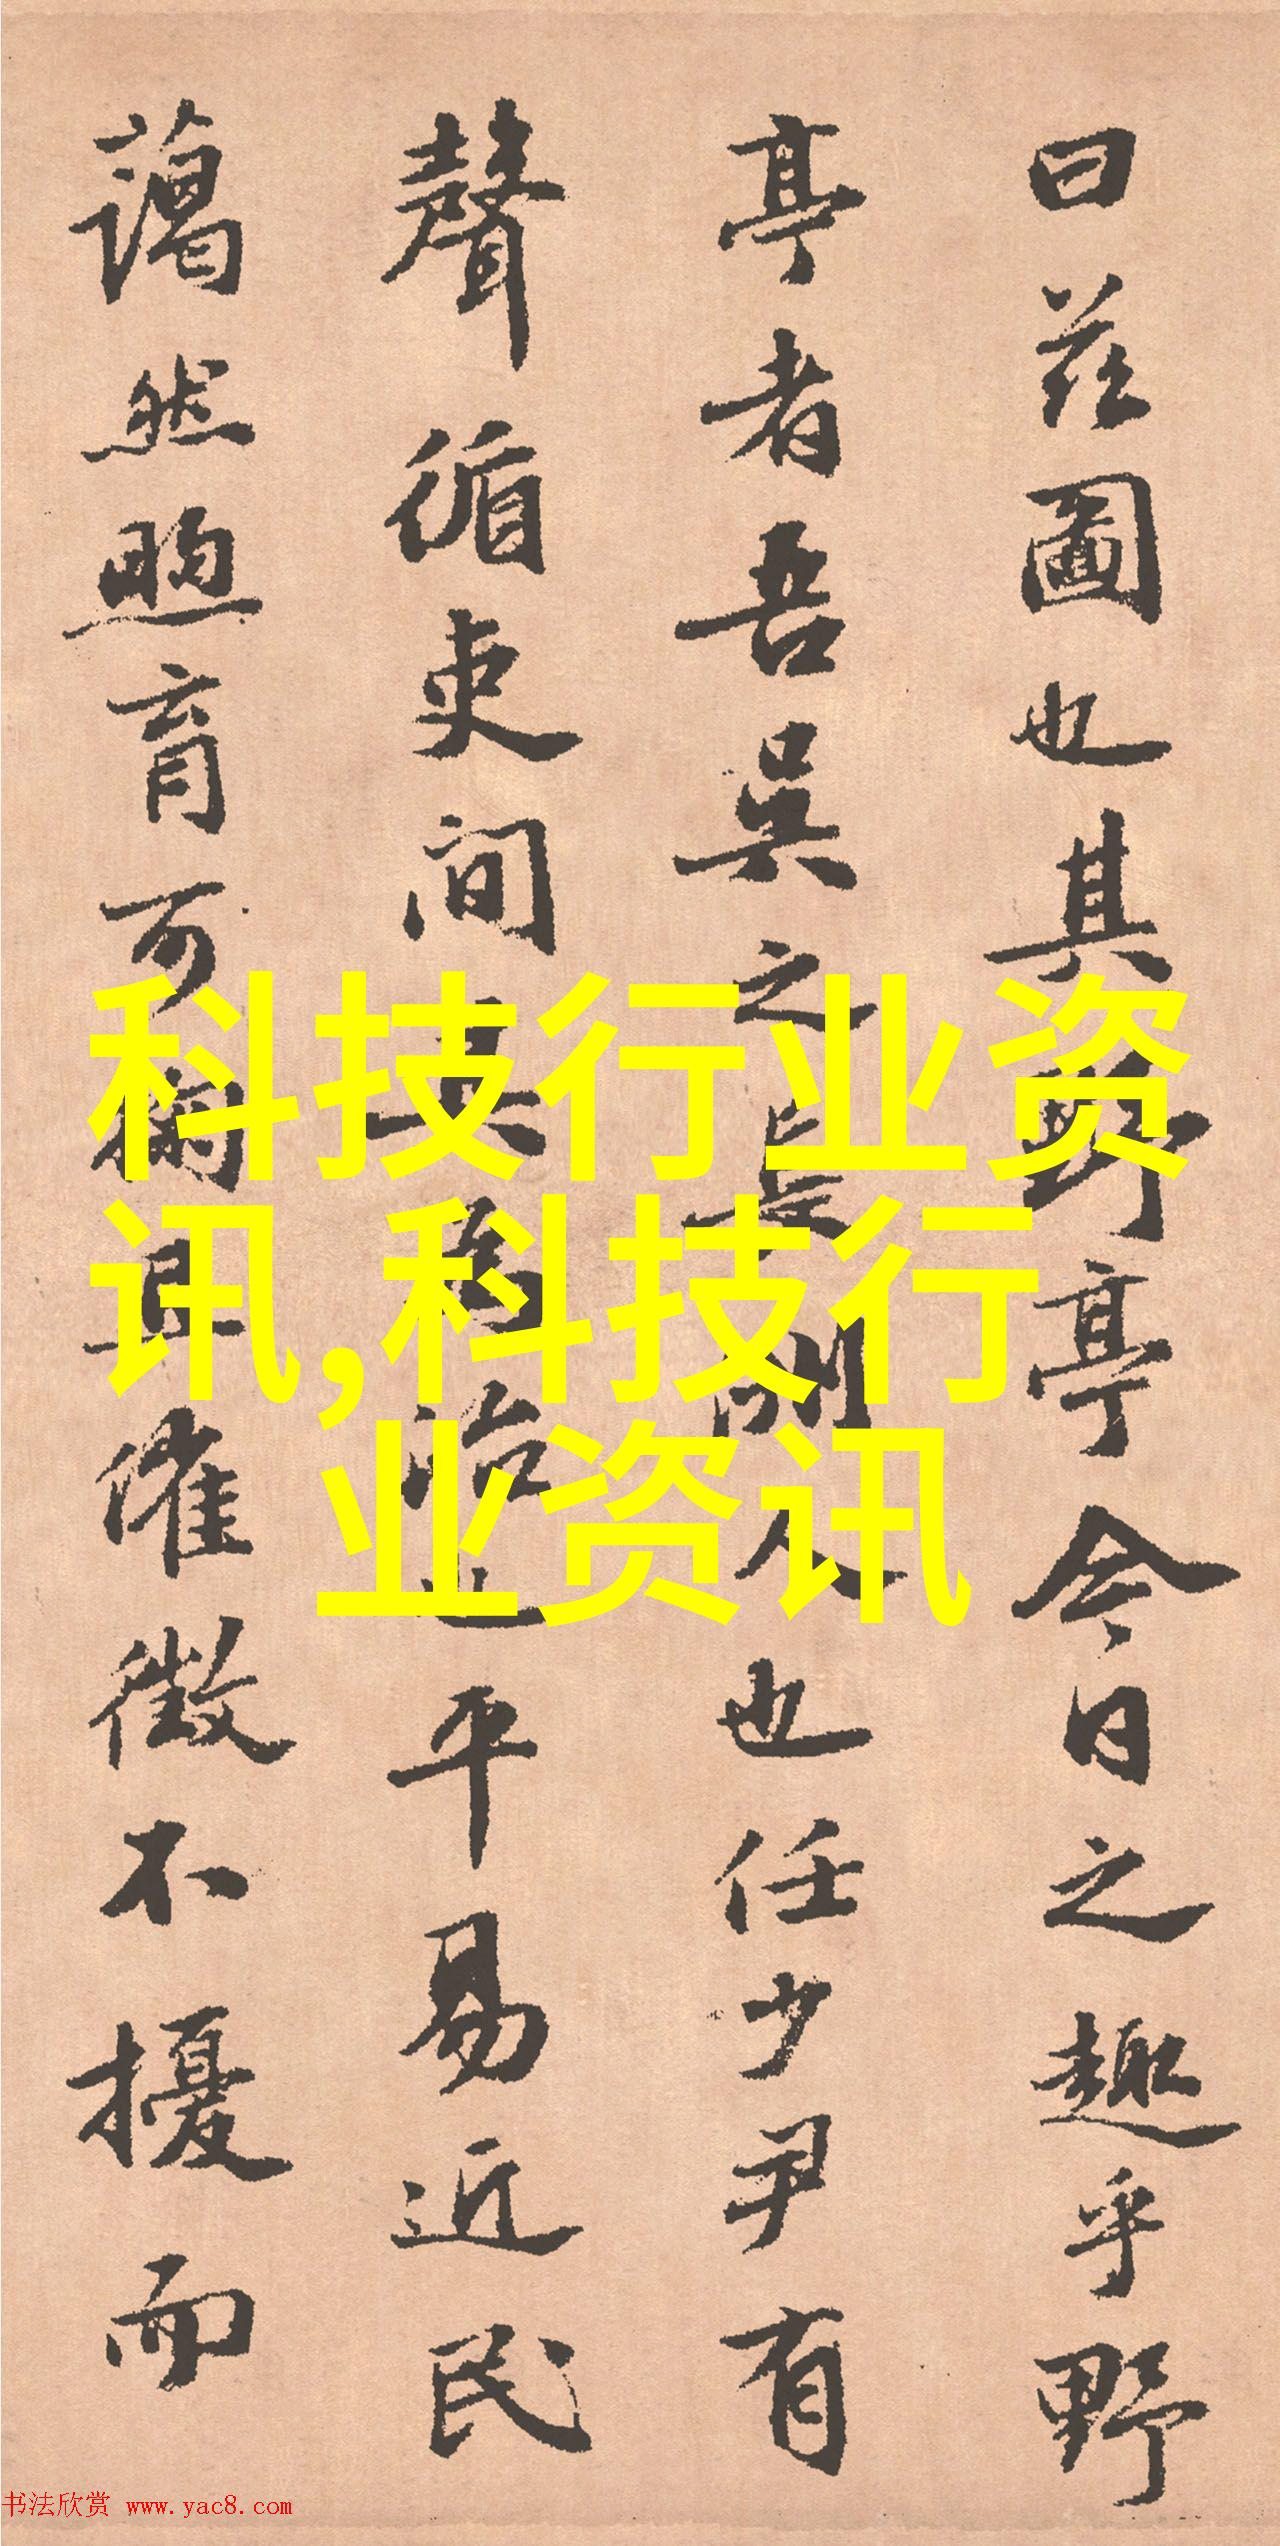 曰茲圖也其野亭今日之趣乎野
亭者吾吳之良明人也任少尹有
聲循吏間其為治也平易近民
藹然煦育可掬且催徵不擾而
科技行业资
讯,科技行
业资讯
书法欣赏 www.yac8.com